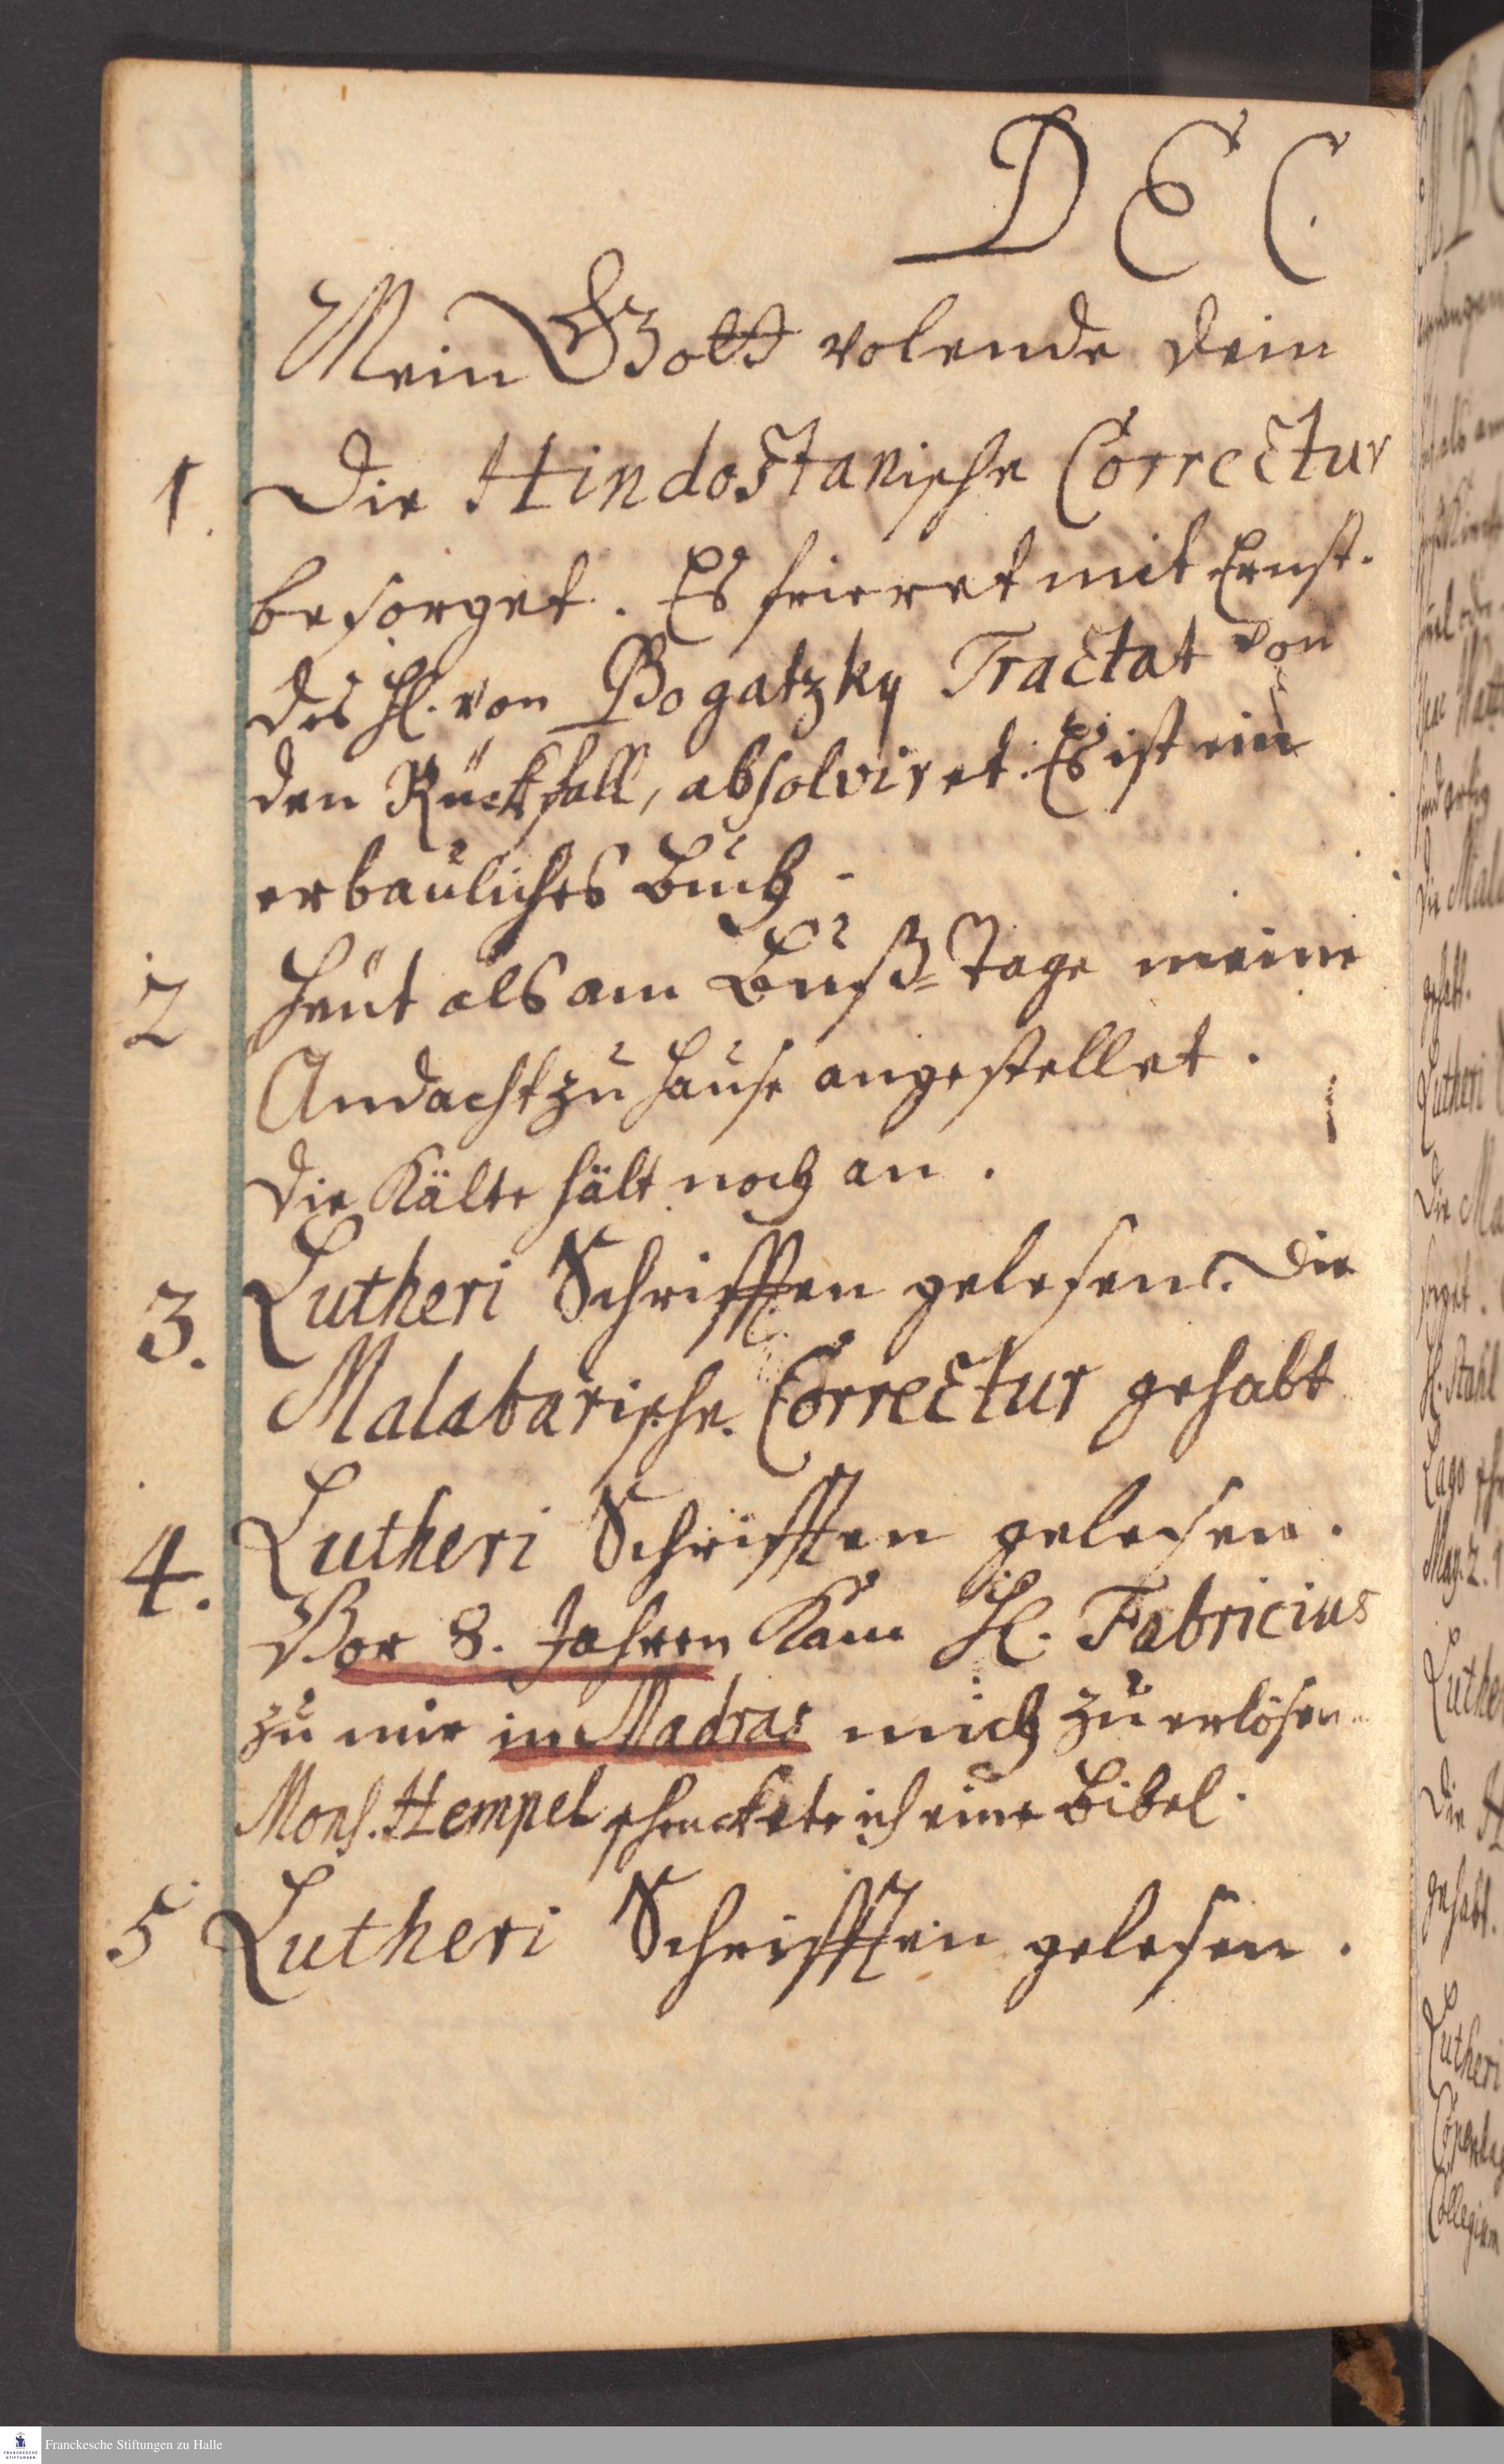 DEC
Mein Gott volende dein
1. Die Hindostanische Correctur
besorget. Es frieret mit Ernst.
des H. von Bogatzky Tractat von
den Rückfall, absolviret. Es ist ein
erbauliches Buch.
2 Heut als am Buß-Tage meine
Andacht zu Hause angestellet.
Die Kälte hält noch an.
3. Lutheri Schrifften gelesen. Die
Malabarische Correctur gehabt
4. Lutheri Schrifften gelesen.
Vor 8. Jahren kam H. Fabricius
zu mir in Madras mich zu erlösen.
Mons. Hempel schenckete ich eine Bibel.
5 Lutheri Schrifften gelesen.
Franckesche Stiftungen zu Halle